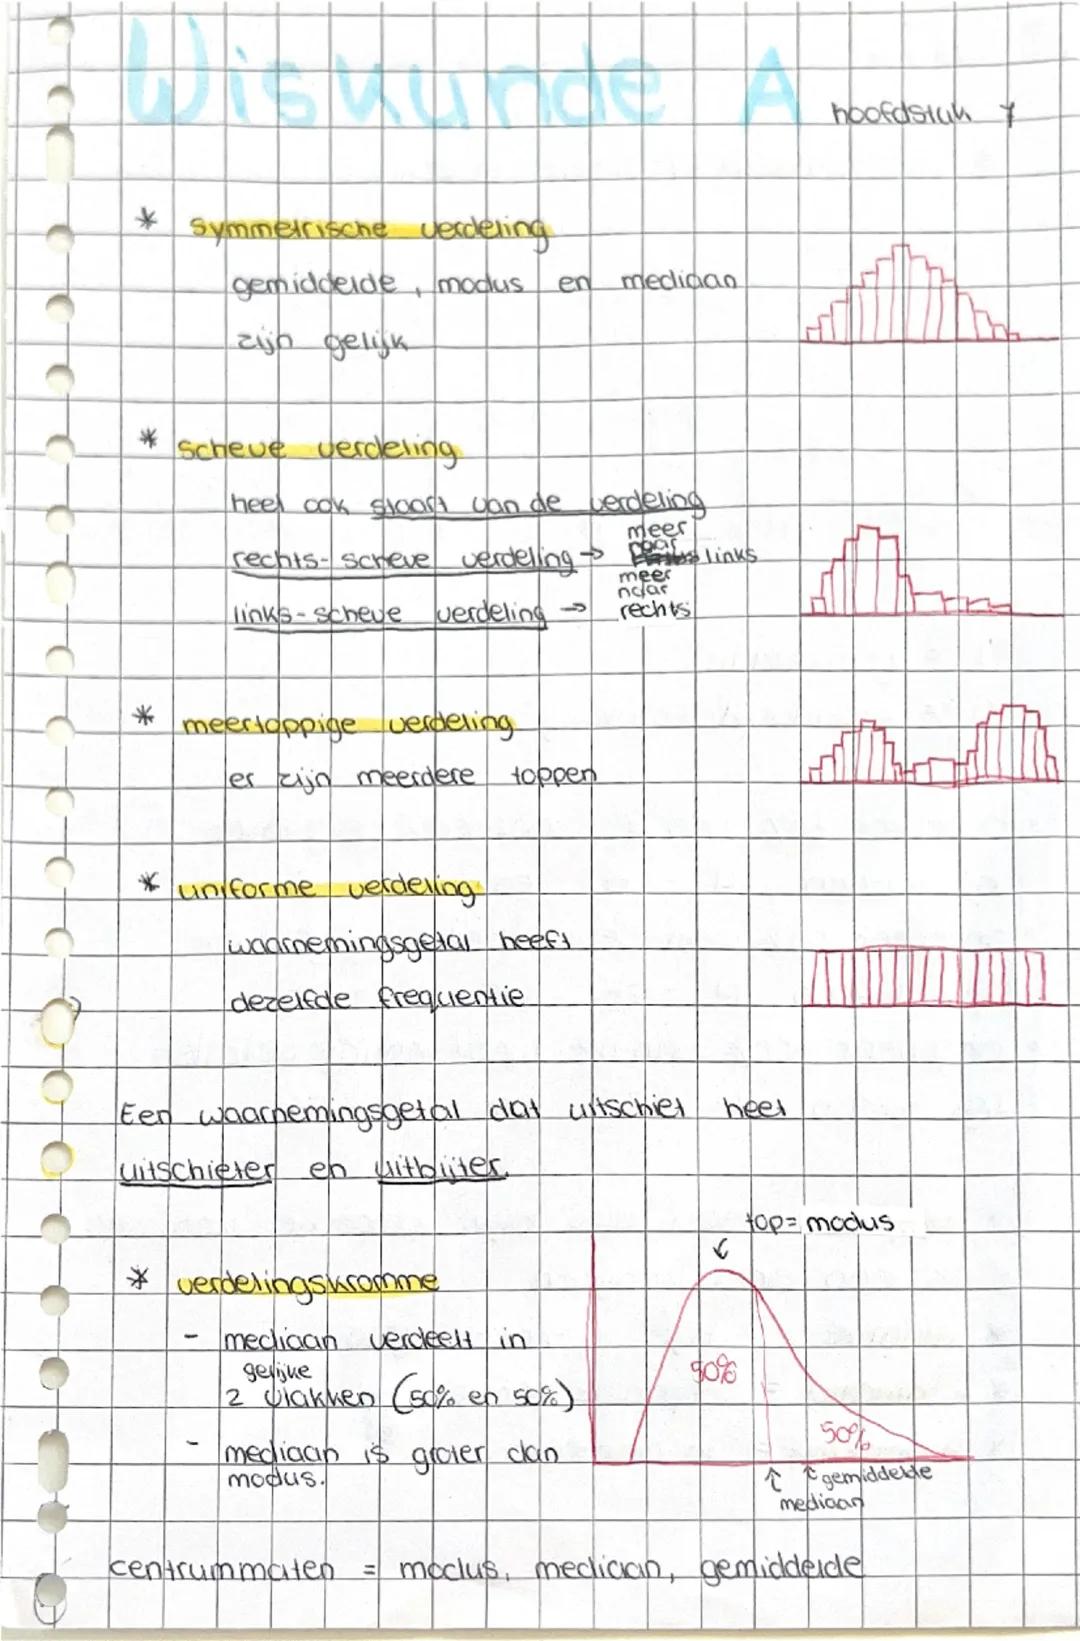 Wiskunde A hoofdstuk 7
* symmetrische verdeling
gemiddelde, modus en mediaan
zijn gelijk
* scheve verdeling
heet ook staart van de verdeling
rechts-scheve verdeling → meer naar links
links-scheve verdeling → meer naar rechts
* meertoppige verdeling
er zijn meerdere toppen
* uniforme verdeling
waarnemingsgetal heeft
dezelfde frequentie
Een waarnemingsgetal dat uitschiet heet
uitschieter en uitbijter.
top = modus
* verdelingskromme
- mediaan verdeelt in
gelijke
2 vlakken (50% en 50%)
- mediaan is groter dan
modus.
50%
50%
gemiddelde
mediaan
centrummaten = modus, mediaan, gemiddelde